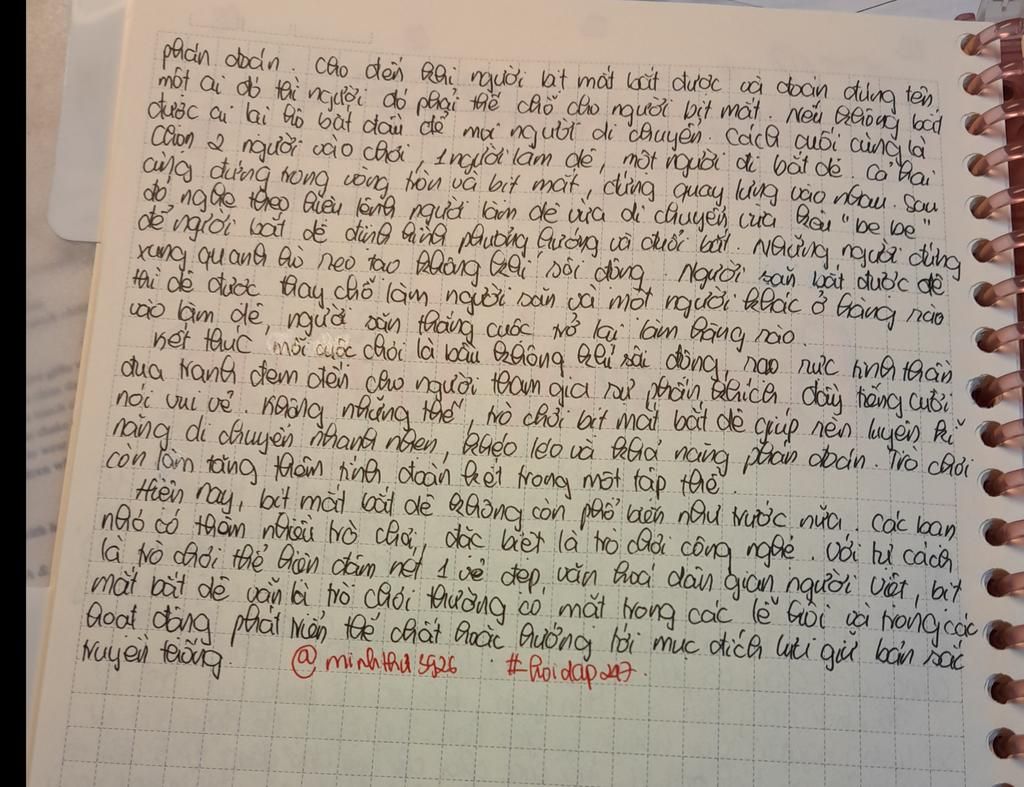 phán đoán. Cho đến khi người bịt mắt bắt được và đoán đúng tên
một ai đó thì người đó phải thế chỗ cho người bịt mắt. Nếu không bắt
được ai lại hô bắt đầu để mọi người di chuyển. Cách cuối cùng là
chọn 2 người vào chơi, 1 người làm dê, một người đi bắt dê. Cả hai
cùng đứng trong vòng tròn và bịt mắt, đứng quay lưng vào nhau. Sau
đó, nghe theo hiệu lệnh người làm dê vừa di chuyển vừa kêu "be be"
để người bắt dê định hình phương hướng và đuổi bắt. Những người đứng
xung quanh hò reo tạo không khí sôi động. Người săn bắt được dê
thì dê được thay chỗ làm người săn và một người khác ở hàng rào
vào làm dê, người săn thắng cuộc trở lại làm hàng rào.
Kết thúc mỗi cuộc chơi là bầu không khí sôi động, rạo rực tinh thần
đua tranh đem đến cho người tham gia sự phấn khích đầy tiếng cười
nói vui vẻ. Không những thế, trò chơi bịt mắt bắt dê giúp rèn luyện kĩ
năng di chuyển nhanh nhẹn, khéo léo và khả năng phán đoán. Trò chơi
còn làm tăng thêm tình đoàn kết trong một tập thể.
Hiện nay, bịt mắt bắt dê không còn phổ biến như trước nữa. Các bạn
nhỏ có thêm nhiều trò chơi, đặc biệt là trò chơi công nghệ. Với tư cách
là trò chơi thể hiện đậm nét 1 vẻ đẹp, văn hoá dân gian người Việt, bịt
mắt bắt dê vẫn là trò chơi thường có mặt trong các lễ hội và trong các
hoạt động phát triển thể chất hoặc hướng tới mục đích lưu giữ bản sắc
truyền thống. @minhthu3926 #hoidap247.